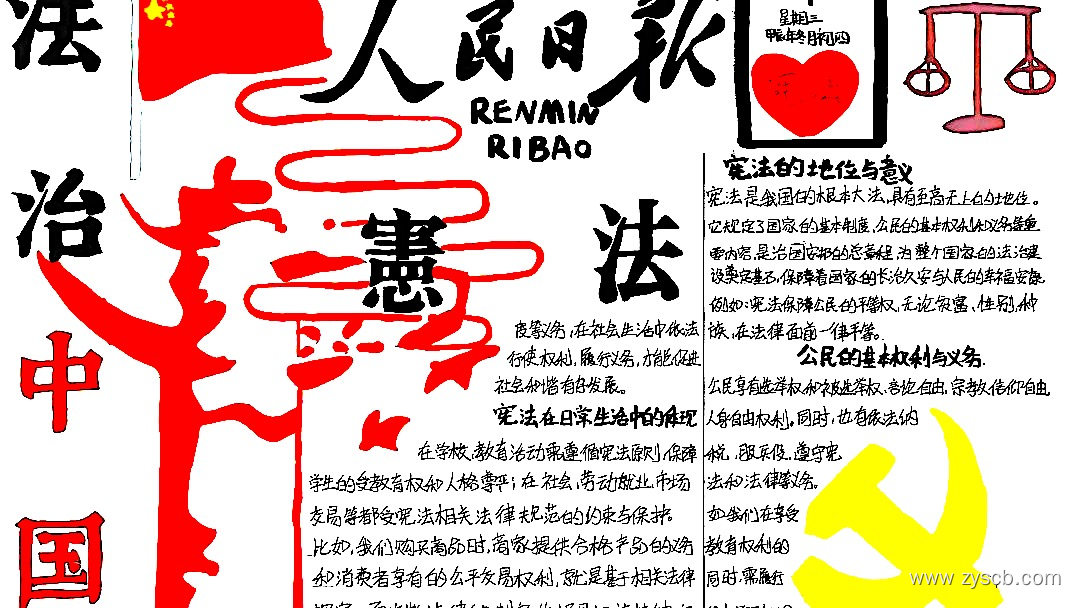 法
治
中
国
人民日报
RENMIN
RIBAO
星期三
甲辰年冬月初四
憲 法
宪法的地位与意义
宪法是我国的根本大法,具有至高无上的地位。
它规定了国家的基本制度,公民的基本权利和义务等重
要内容,是治国安邦的总章程,为整个国家的法治建
设奠定基石,保障着国家的长治久安与人民的幸福安康
例如:宪法保障公民的平等权,无论贫富、性别,种
族,在法律面前一律平等。
公民的基本权利与义务
公民享有选举权和被选举权、言论自由,宗教信仰自由
人身自由权利。同时,也有依法纳
税,服兵役,遵守宪
法和法律等义务。
如我们在享受
教育权利的
同时,需履行
度等义务,在社会生活中依法
行使权利,履行义务,才能促进
社会和谐有序发展。
宪法在日常生活中的体现
在学校,教育活动需遵循宪法原则,保障
学生的受教育权和人格尊严;在社会,劳动就业,市场
交易等都受宪法相关法律规范的约束与保护。
比如,我们购买商品时,商家提供合格产品的义务
和消费者享有的公平交易权利,就是基于相关法律
www.zyscb.com